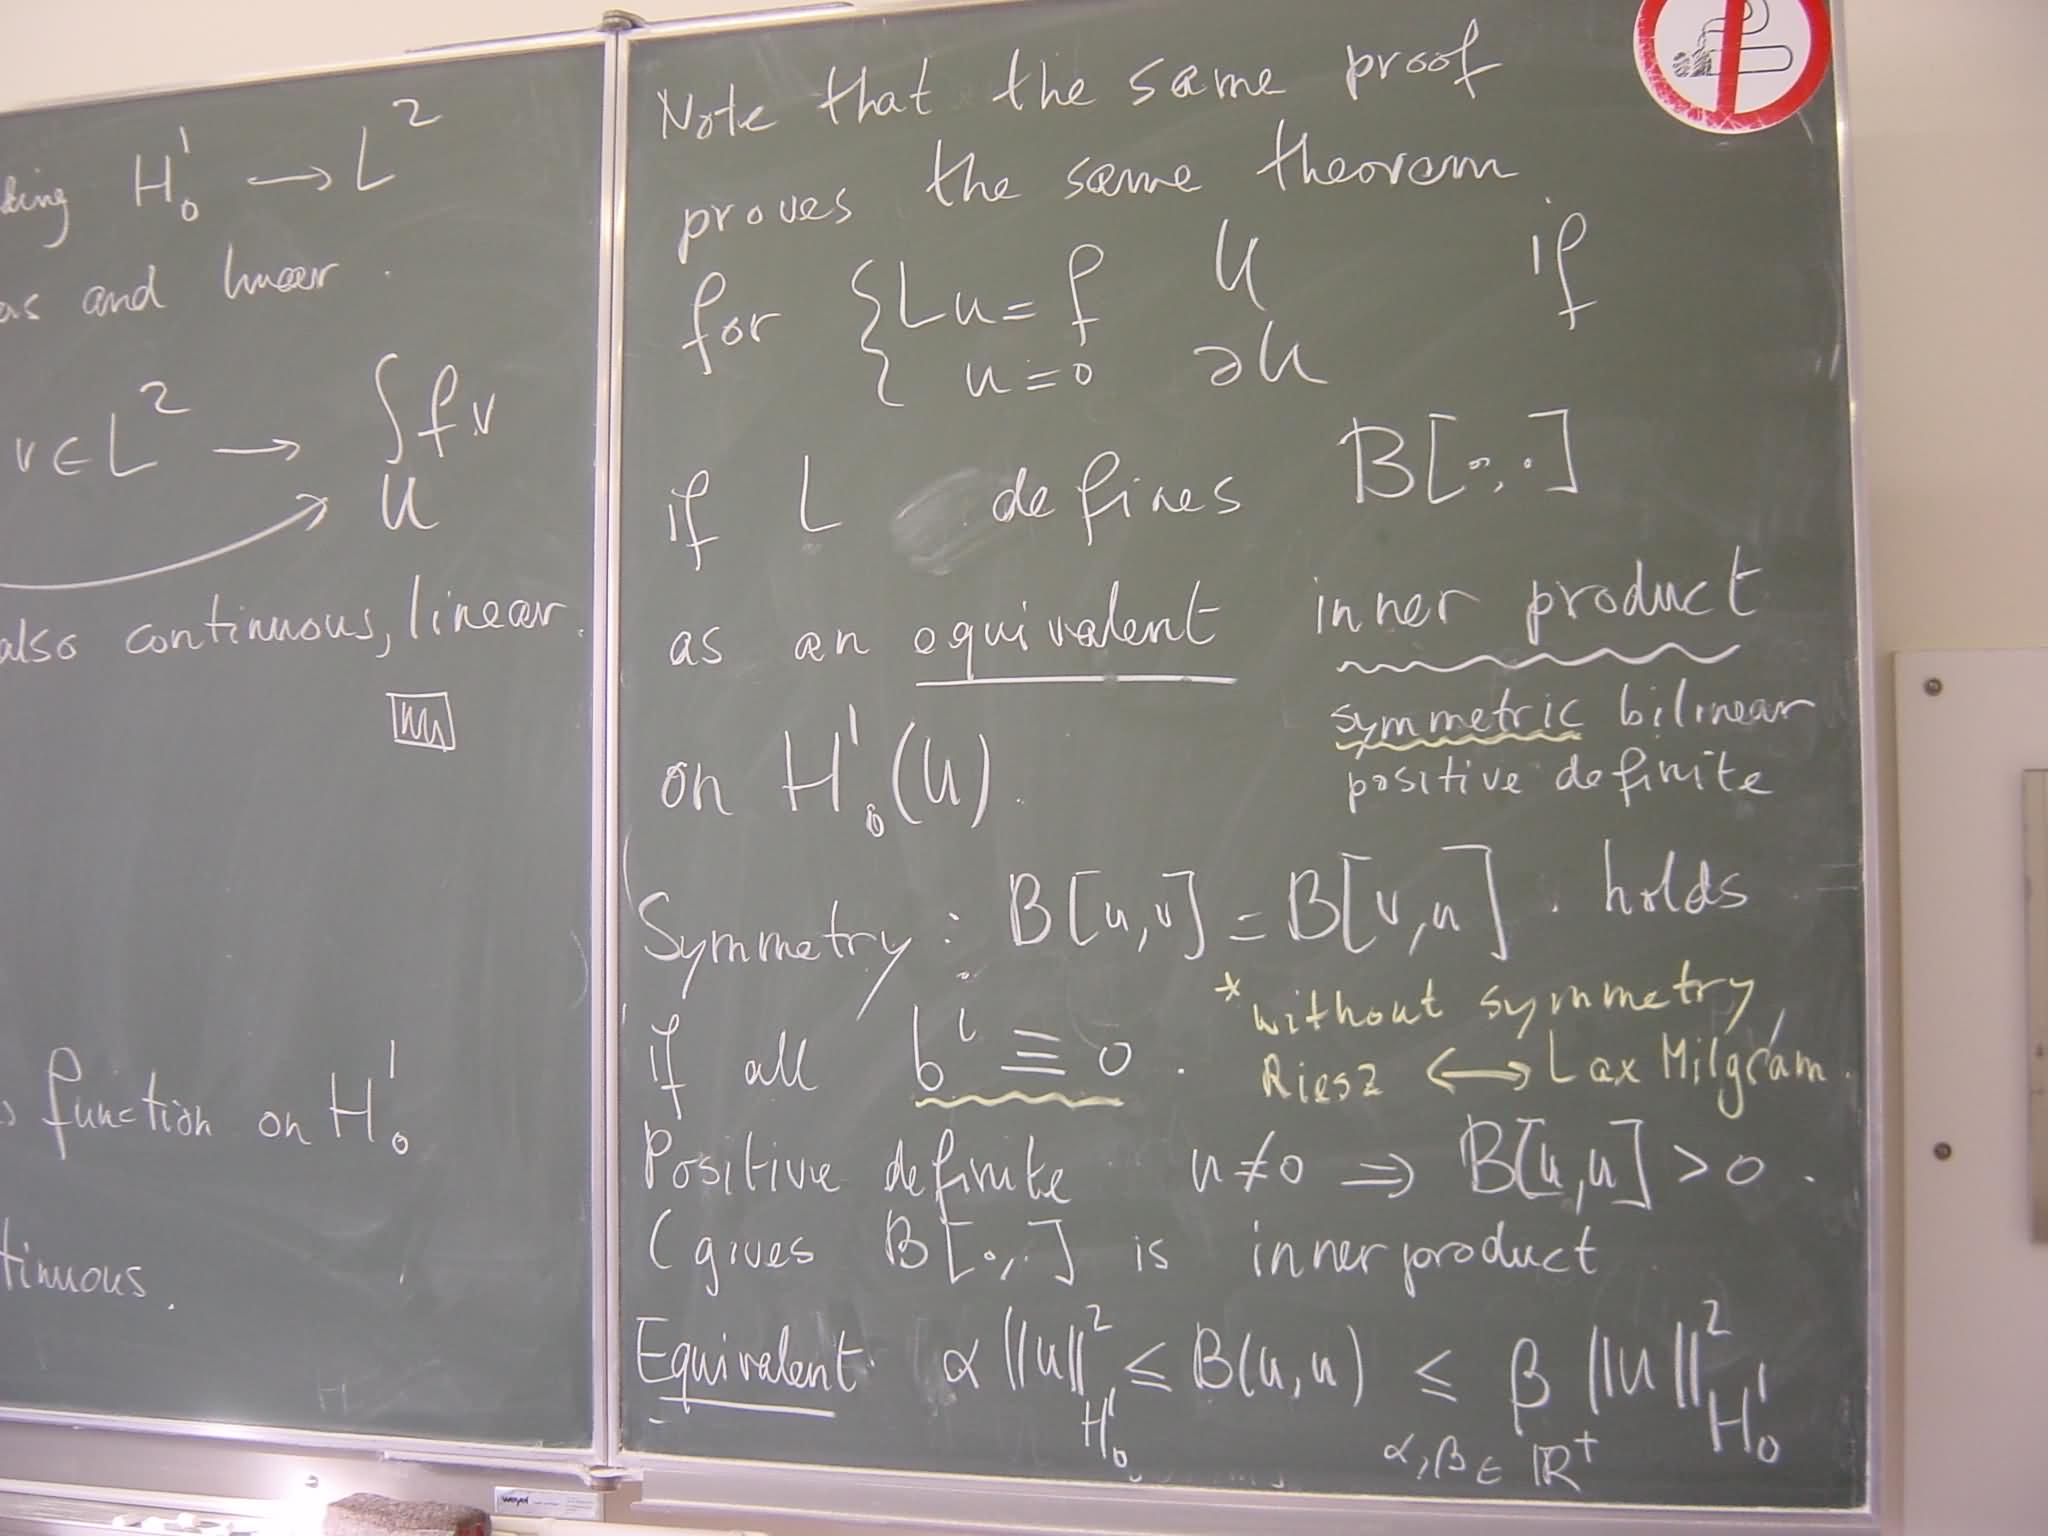 H₀¹ → L²
and linear.
v ∈ L² → ∫ f v
U
also continuous, linear.
function on H₀¹
Note that the same proof
proves the same theorem
for { Lu = f U if
u = 0 ∂U
if L defines B[·,·]
as an equivalent inner product
symmetric bilinear
positive definite
on H₀¹(U).
Symmetry: B[u,v] = B[v,u]. holds
* without symmetry,
if all bⁱ ≡ 0.
Riesz ↔ Lax Milgram.
Positive definite u ≠ 0 ⇒ B[u,u] > 0.
(gives B[·,·] is inner product
Equivalent α ||u||²_{H₀¹} ≤ B(u,u) ≤ β ||u||²_{H₀¹}
α, β ∈ ℝ⁺